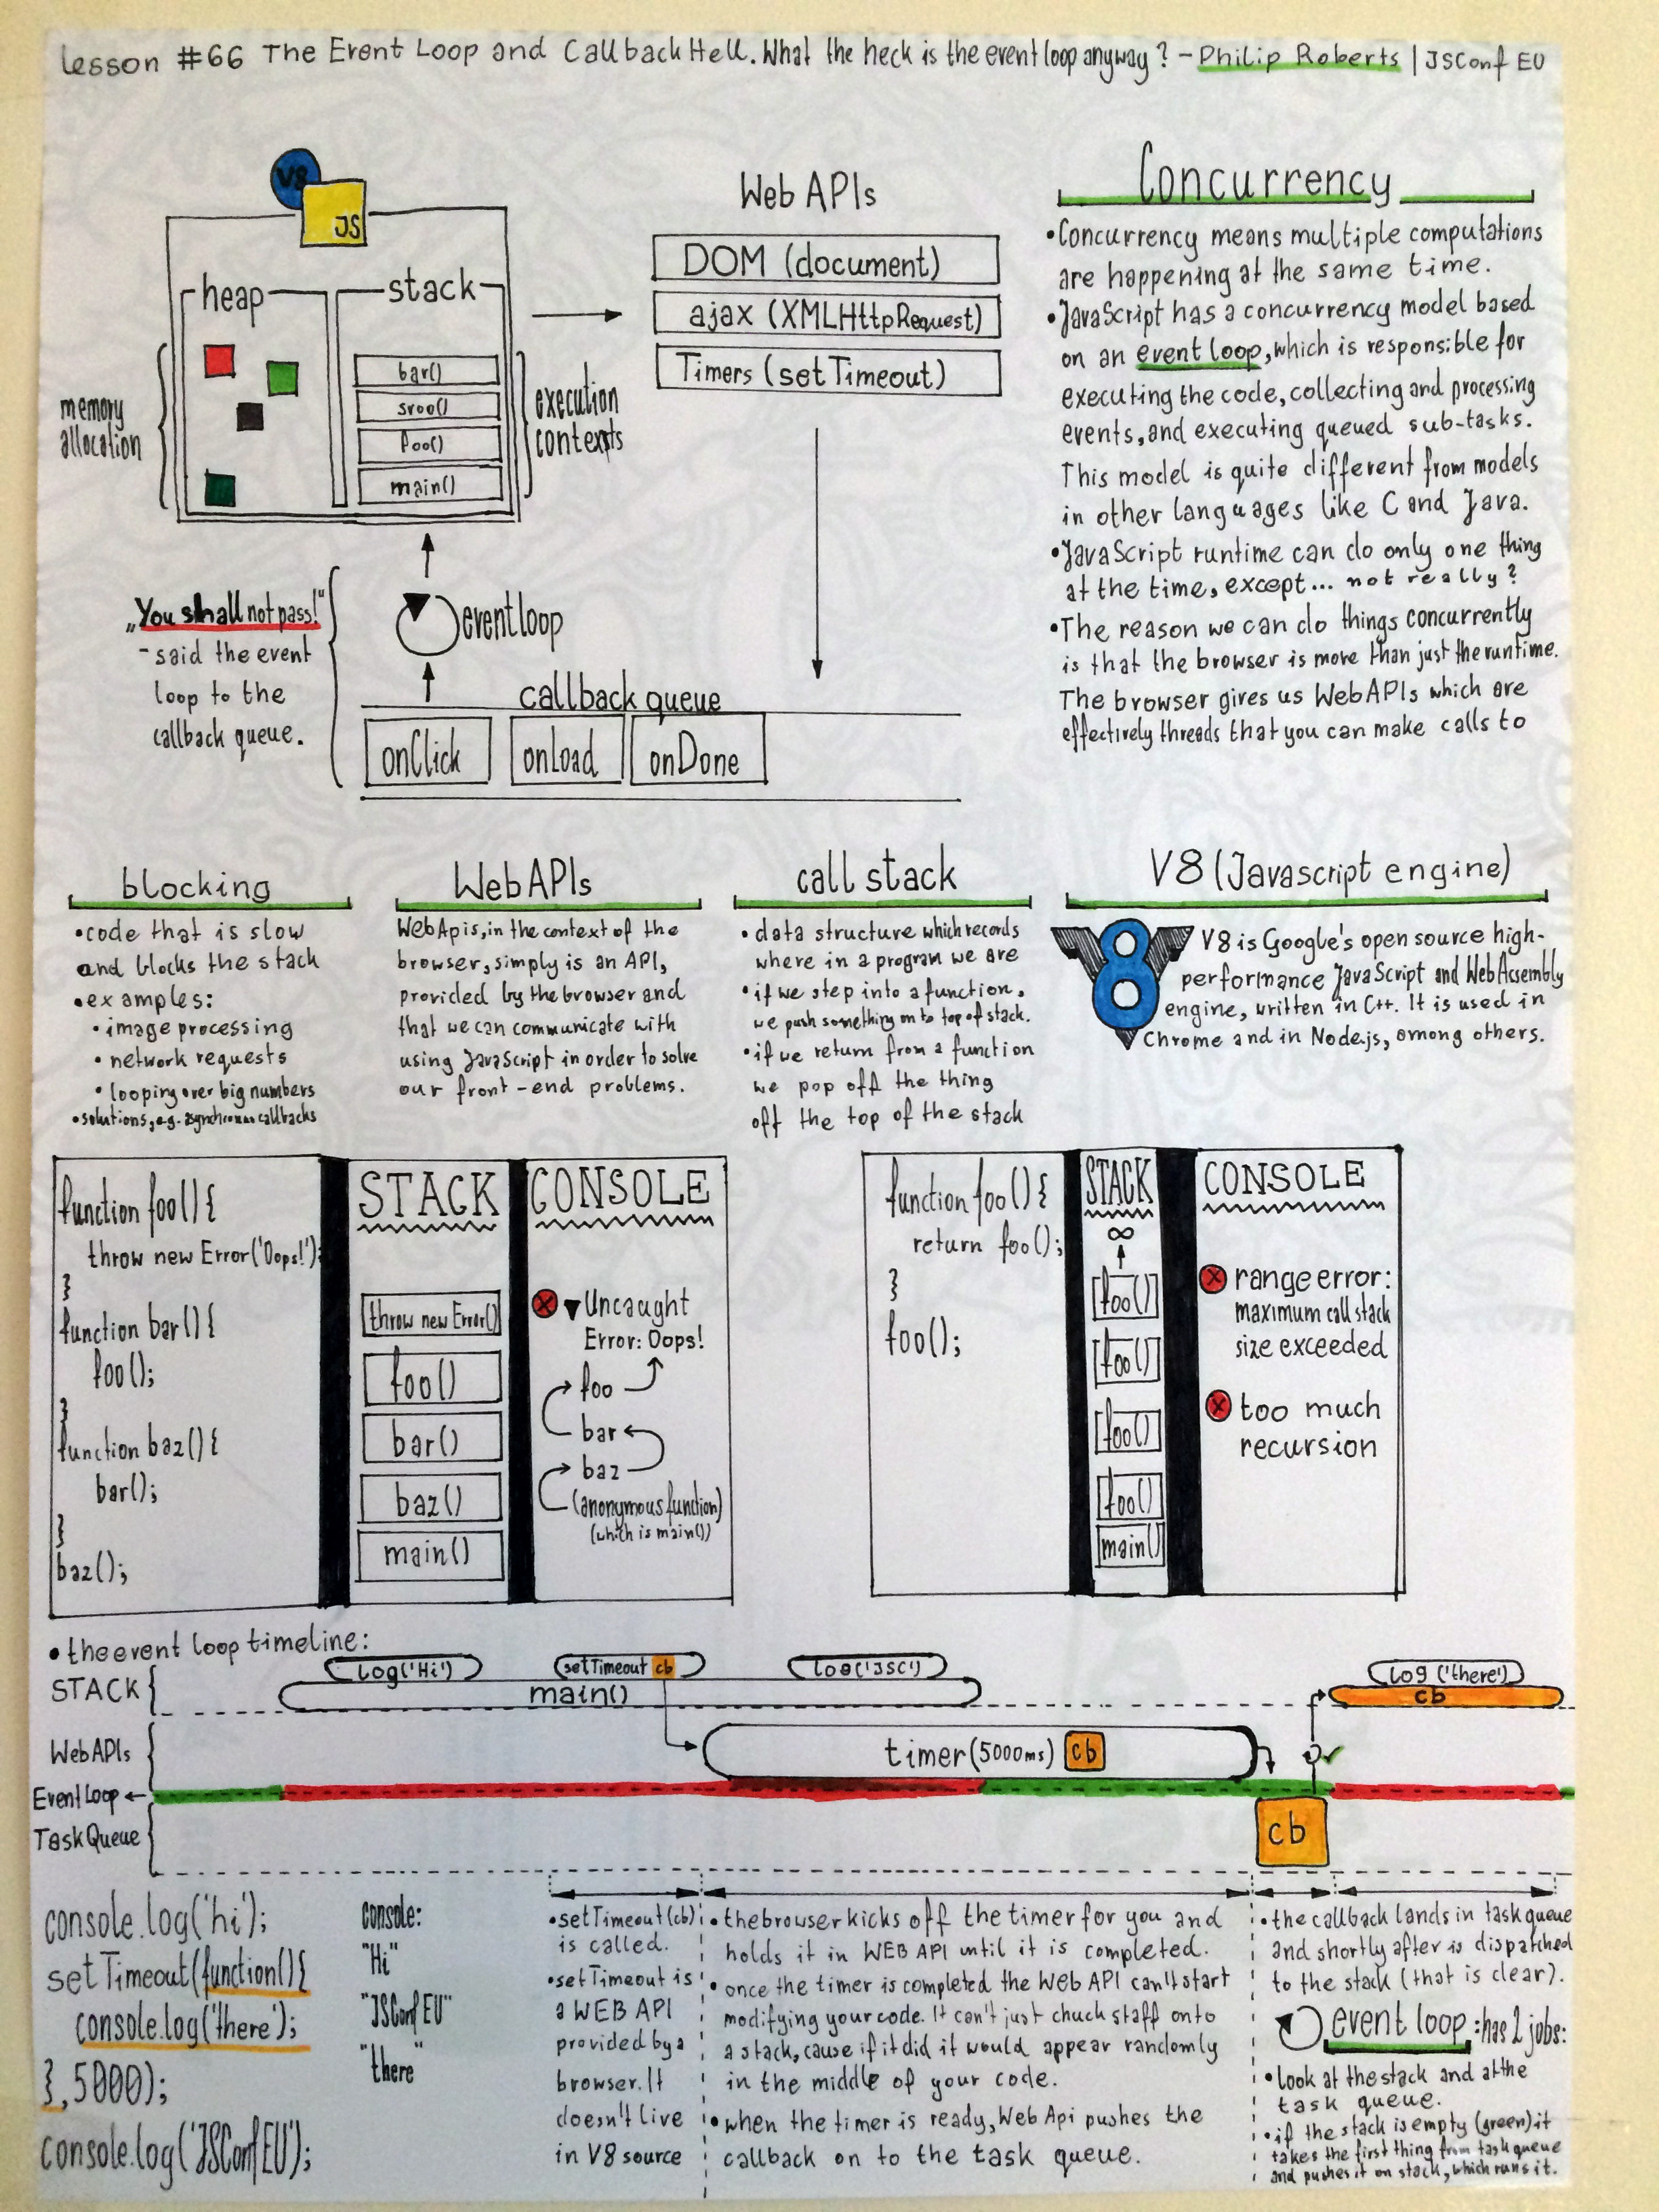 Lesson #66 The Event Loop and Callback Hell. What the heck is the event loop anyway? - Philip Roberts | JSConf EU
V8
JS
heap
stack
bar()
sroo()
foo()
main()
memory
allocation
execution
contexts
Web APIs
DOM (document)
ajax (XMLHttpRequest)
Timers (setTimeout)
„You shall not pass!"
- said the event
loop to the
callback queue.
event loop
callback queue
onClick
onLoad
onDone
Concurrency
•Concurrency means multiple computations
are happening at the same time.
•JavaScript has a concurrency model based
on an event loop, which is responsible for
executing the code, collecting and processing
events, and executing queued sub-tasks.
This model is quite different from models
in other languages like C and Java.
•JavaScript runtime can do only one thing
at the time, except... not really?
•The reason we can do things concurrently
is that the browser is more than just the runtime.
The browser gives us WebAPIs which are
effectively threads that you can make calls to
blocking
•code that is slow
and blocks the stack
•examples:
•image processing
•network requests
•looping over big numbers
•solutions, e.g. asynchronous callbacks
WebAPIs
WebApis, in the context of the
browser, simply is an API,
provided by the browser and
that we can communicate with
using JavaScript in order to solve
our front-end problems.
call stack
•data structure which records
where in a program we are
•if we step into a function,
we push something on to top of stack.
•if we return from a function
we pop off the thing
off the top of the stack
V8 (Javascript engine)
8
V8 is Google's open source high-
performance JavaScript and WebAssembly
engine, written in C++. It is used in
Chrome and in Node.js, among others.
function foo() {
throw new Error('Oops!');
}
function bar() {
foo();
}
function baz() {
bar();
}
baz();
STACK
throw new Error()
foo()
bar()
baz()
main()
CONSOLE
Uncaught
Error: Oops!
foo
bar
baz
(anonymous function)
(which is main())
function foo() {
return foo();
}
foo();
STACK
∞
foo()
foo()
foo()
foo()
main()
CONSOLE
range error:
maximum call stack
size exceeded
too much
recursion
•the event loop timeline:
STACK
log('Hi')
setTimeout cb
log('JSC')
main()
log('there')
cb
WebAPIs
timer(5000ms) cb
Event Loop
Task Queue
cb
console.log('hi');
setTimeout(function(){
console.log('there');
},5000);
console.log('JSConfEU');
console:
"Hi"
"JSConf EU"
"there"
•setTimeout(cb)
is called.
•setTimeout is
a WEB API
provided by a
browser. It
doesn't live
in V8 source
•the browser kicks off the timer for you and
holds it in WEB API until it is completed.
•once the timer is completed the Web API can't start
modifying your code. It can't just chuck staff onto
a stack, cause if it did it would appear randomly
in the middle of your code.
•when the timer is ready, Web Api pushes the
callback on to the task queue.
•the callback lands in task queue
and shortly after is dispatched
to the stack (that is clear).
event loop :has 2 jobs:
•look at the stack and at the
task queue.
•if the stack is empty (green) it
takes the first thing from task queue
and pushes it on stack, which runs it.